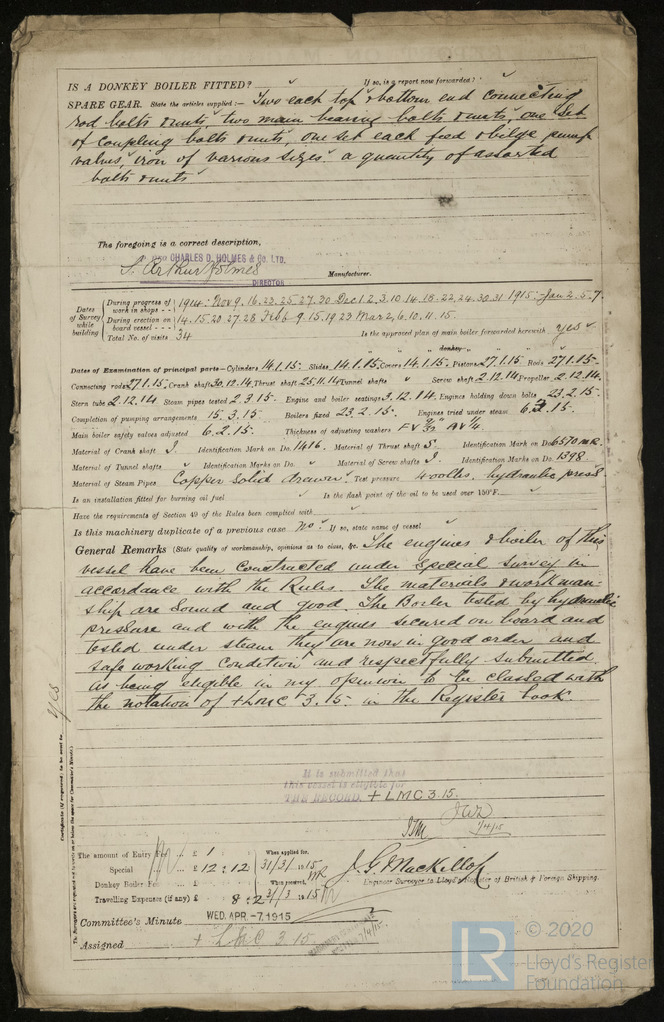 IS A DONKEY BOILER FITTED? If so, is a report now forwarded?
SPARE GEAR. State the articles supplied:— Two each top & bottom end connecting
rod bolts & nuts, two main bearing bolts & nuts, one set
of coupling bolts & nuts, one set each feed & bilge pump
valves, iron of various sizes a quantity of assorted
bolts & nuts
The foregoing is a correct description,
CHARLES D. HOLMES & Co. LTD.
S. Arthur Holmes Manufacturer.
DIRECTOR
Dates of Survey while building
During progress of work in shops -- 1914: Nov 9. 16. 23. 25. 27. 30 Dec 1 2. 3. 10. 14. 18. 22. 24. 30. 31 1915:- Jan 2. 5. 7.
During erection on board vessel --- 14. 15 20. 27. 28 Feb 6. 9. 15. 19 23 Mar 2, 6. 10. 11. 15.
Total No. of visits 34 Is the approved plan of main boiler forwarded herewith yes
" " " donkey " " "
Dates of Examination of principal parts—Cylinders 14.1.15. Slides 14.1.15. Covers 14.1.15. Pistons 27.1.15. Rods 27.1.15.
Connecting rods 27.1.15. Crank shaft 30.12.14 Thrust shaft 25.11.14 Tunnel shafts Screw shaft 2.12.14 Propeller 2.12.14.
Stern tube 2.12.14 Steam pipes tested 2.3.15 Engine and boiler seatings 3.12.14 Engines holding down bolts 23.2.15.
Completion of pumping arrangements 15.3.15 Boilers fixed 23.2.15. Engines tried under steam 6.3.15.
Main boiler safety valves adjusted 6.2.15. Thickness of adjusting washers
Material of Crank shaft I. Identification Mark on Do. 1416. Material of Thrust shaft S. Identification Mark on Do. 6570
Material of Tunnel shafts Identification Marks on Do. Material of Screw shafts I. Identification Marks on Do. 1398.
Material of Steam Pipes Copper solid drawn. Test pressure 400 lbs. hydraulic press.
Is an installation fitted for burning oil fuel Is the flash point of the oil to be used over 150°F.
Have the requirements of Section 49 of the Rules been complied with
Is this machinery duplicate of a previous case no. If so, state name of vessel
General Remarks (State quality of workmanship, opinions as to class, &c. The engines & boiler of this
vessel have been constructed under special survey in
accordance with the Rules. The materials & workman-
ship are sound and good. The Boiler tested by hydraulic
pressure and with the engines secured on board and
tested under steam they are now in good order and
safe working condition and respectfully submitted
as being eligible in my opinion to be classed with
the notation of + LMC 3.15. in the Register book.
It is submitted that
this vessel is eligible for
THE RECORD. + LMC 3.15.
JWD
7/4/15
The amount of Entry Fee £ 1 : : When applied for,
Special £ 12 : 12 : 31/3/1915
Donkey Boiler Fee £ : : When received,
Travelling Expenses (if any) £ : 8 : 2 31/3/1915
J. G. Mackillop
Engineer Surveyor to Lloyd's Register of British & Foreign Shipping.
Committee's Minute WED. APR -7. 1915
Assigned + LMC 3.15.
yes
© 2020
LR
Lloyd's Register
Foundation